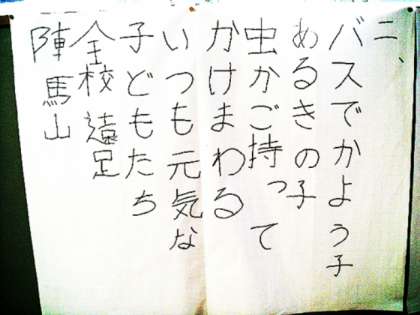 二、
バスでかよう子
あるきの子
虫かご持って
かけまわる
いつも元気な
子どもたち
全校遠足
陣馬山